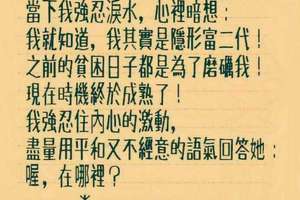 當下我強忍淚水，心裡暗想：
我就知道，我其實是隱形富二代！
之前的貧困日子都是為了磨礪我！
現在時機終於成熟了！
我強忍住內心的激動，
盡量用平和又不經意的語氣回答她：
喔，在哪裡？